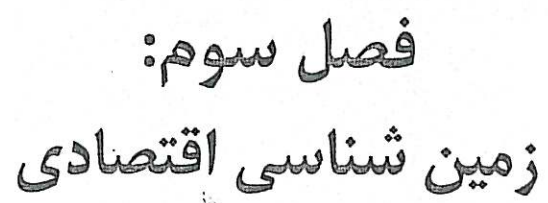 فصل سوم:
زمین شناسی اقتصادی